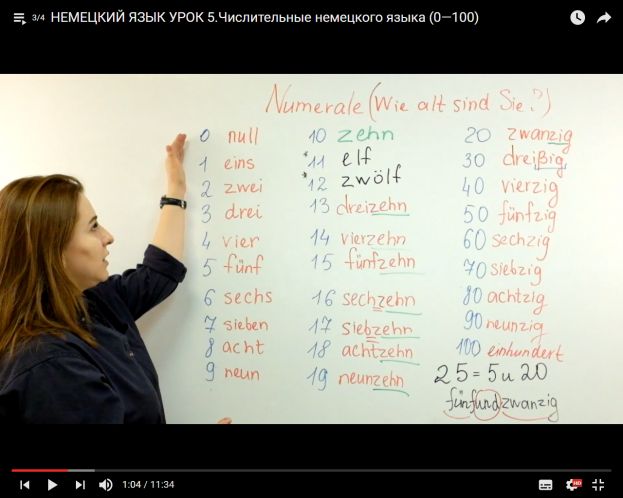 3/4 НЕМЕЦКИЙ ЯЗЫК УРОК 5.Числительные немецкого языка (0—100)
Numerale (Wie alt sind Sie?)
0 null
1 eins
2 zwei
3 drei
4 vier
5 fünf
6 sechs
7 sieben
8 acht
9 neun
10 zehn
*11 elf
*12 zwölf
13 dreizehn
14 vierzehn
15 fünfzehn
16 sechzehn
17 siebzehn
18 achtzehn
19 neunzehn
20 zwanzig
30 dreißig
40 vierzig
50 fünfzig
60 sechzig
70 siebzig
80 achtzig
90 neunzig
100 einhundert
25 = 5 и 20
fünfundzwanzig
1:04 / 11:34
HD